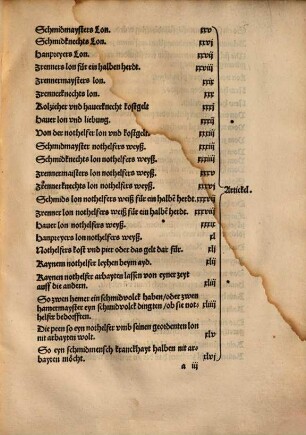 Schmidmaysters Lon. xxv
Schmidknechts Lon. xxvj
Hanpreyers Lon. xxvij
Frenners lon für ein halben herdt. xxviij
Frennermaysters lon. xxix
Frennerknechts lon. xxx
Kolzieher vnd hauerknecht kostgelt xxxj
Hauer lon vnd liebung. xxxij
Von der nothelfer lon vnd kostgelt. xxxiij
Schmidmayster nothelfers weyß. xxxiiij
Schmidknechts lon nothelfers weyß. xxxiij
Frennermaysters lon nothelfers weyß. xxxv
Frennerknechts lon nothelfers weyß. xxxvj
Schmids lon nothelfers weiß für ein halbē herdt. xxxvij
Frenner lon nothelfers weiß für ein halbē herdt. xxxviij
Hauer lon nothelfers weyß. xxxix
Hanpreyers lon nothelfers weyß. xl
Nothelfers kost vnd pier oder das gelt dar für. xlj
Kaynem nothelfer leyhen beym ayd. xlij
Kaynen nothelfer arbayten lassen von eyner zeyt
auff die andern. xliij
So zwen hemer ein schmidvolck haben/oder zwen
hamermayster eyn schmidvolck dingten/ob sie not
helfer bedorfften. xliiij
Die peen so eyn nothelfer vmb seinen geordenten lon
nit arbayten wolt. xlv
So eyn schmidmensch kranckhayt halben nit ar-
bayten möcht. xlvj
Artickel.
a iij